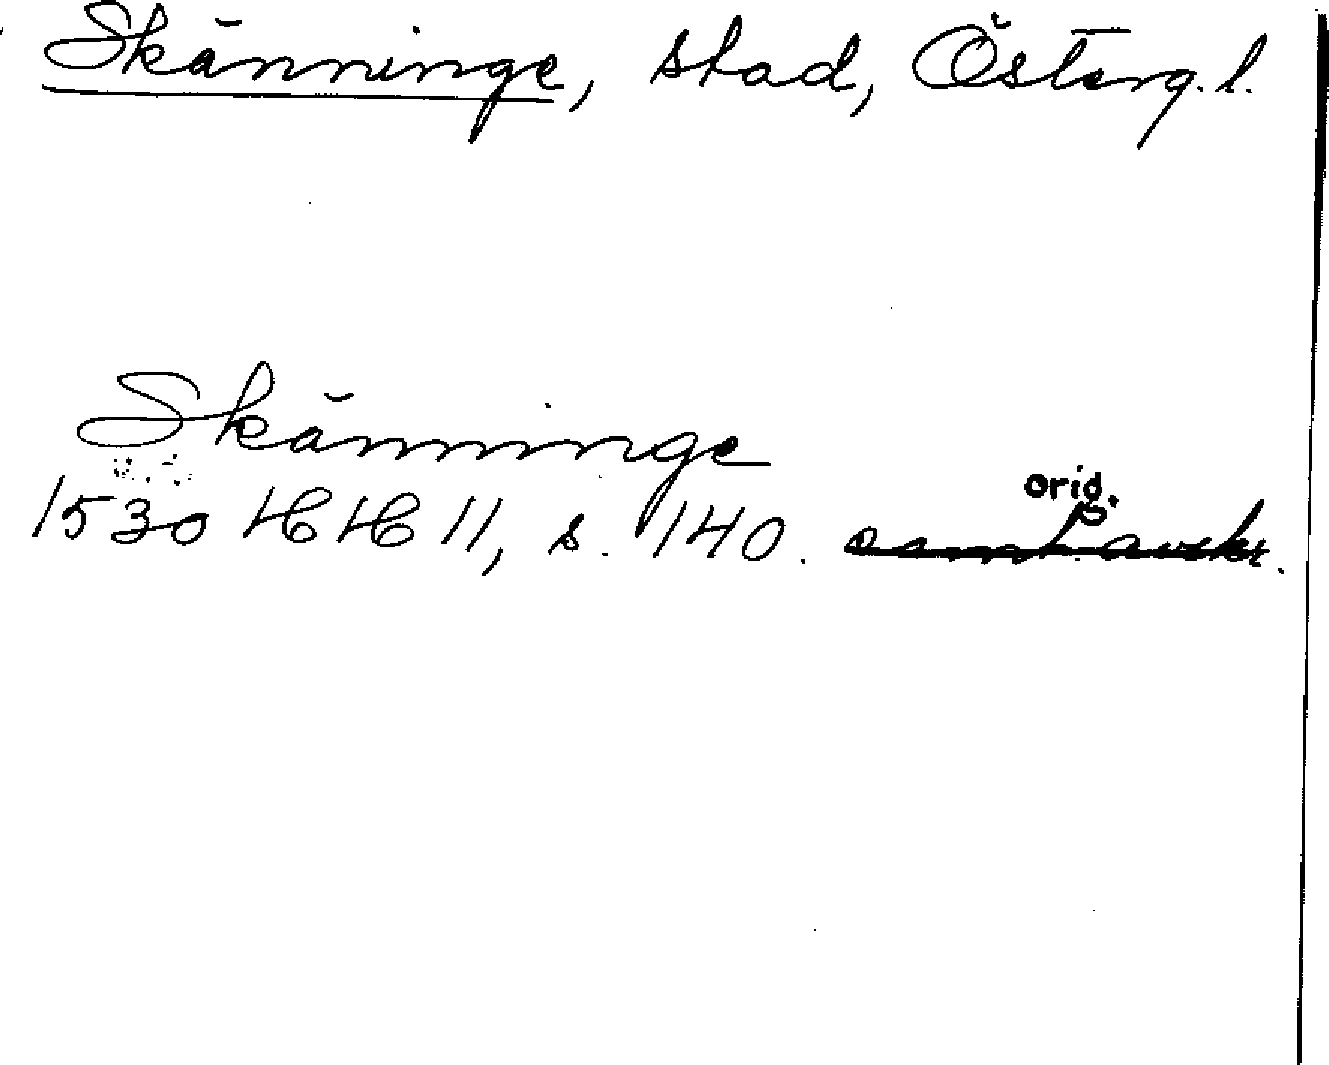 Skänninge, stad, Österg. l.
Skänninge
orig.
1530 HH 11, s. 140.